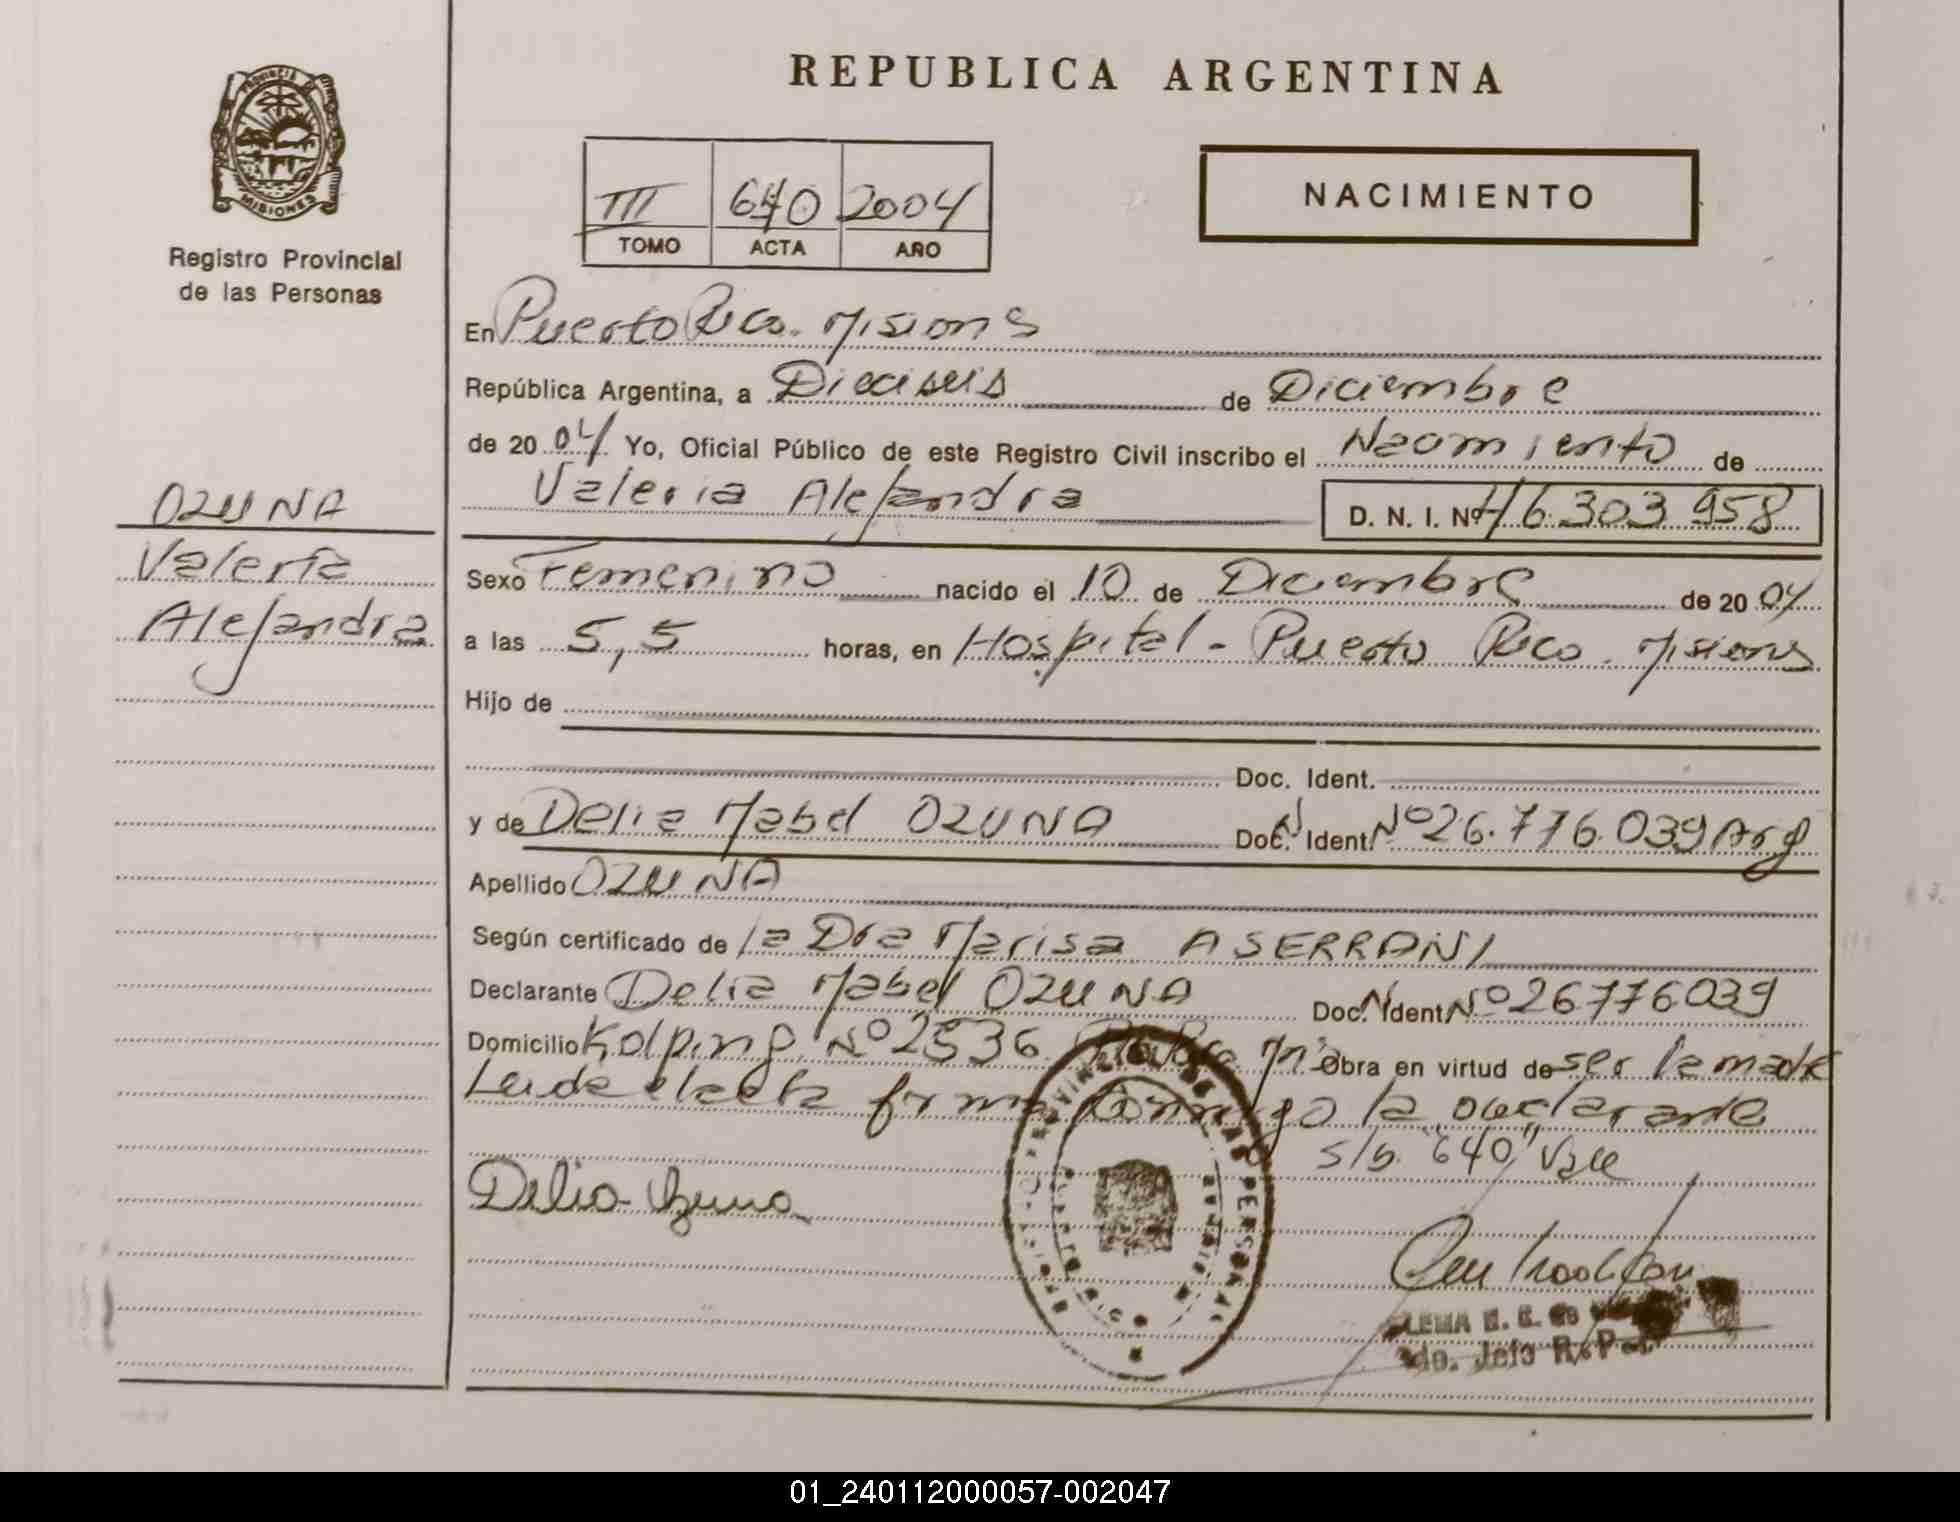 REPUBLICA ARGENTINA
PROVINCIA DE
MISIONES
Registro Provincial
de las Personas
III 640 2004
TOMO ACTA AÑO
NACIMIENTO
En Puerto Rico. Misiones
República Argentina, a Dieciseis de Diciembre
de 20 04 Yo, Oficial Público de este Registro Civil inscribo el Nacimiento de
Valeria Alejandra D. N. I. Nº 46.303.958
OZUNA
Valeria
Alejandra
Sexo Femenino nacido el 10 de Diciembre de 20 04
a las 5,5 horas, en Hospital - Puerto Rico. Misiones
Hijo de
Doc. Ident.
y de Delia Mabel OZUNA Doc. N Ident. Nº 26.776.039 Arg
Apellido OZUNA
Según certificado de la Dra Marisa ASERRANI
Declarante Delia Mabel OZUNA Doc. N Ident. Nº 26776039
Domicilio Kolping Nº 2536 Obra en virtud de ser la madre
Leida el acta firma conmigo la declarante
s/b. "640" Vale
Delia Ozuna
PUERTO RICO
Jefe R. P.
01_240112000057-002047